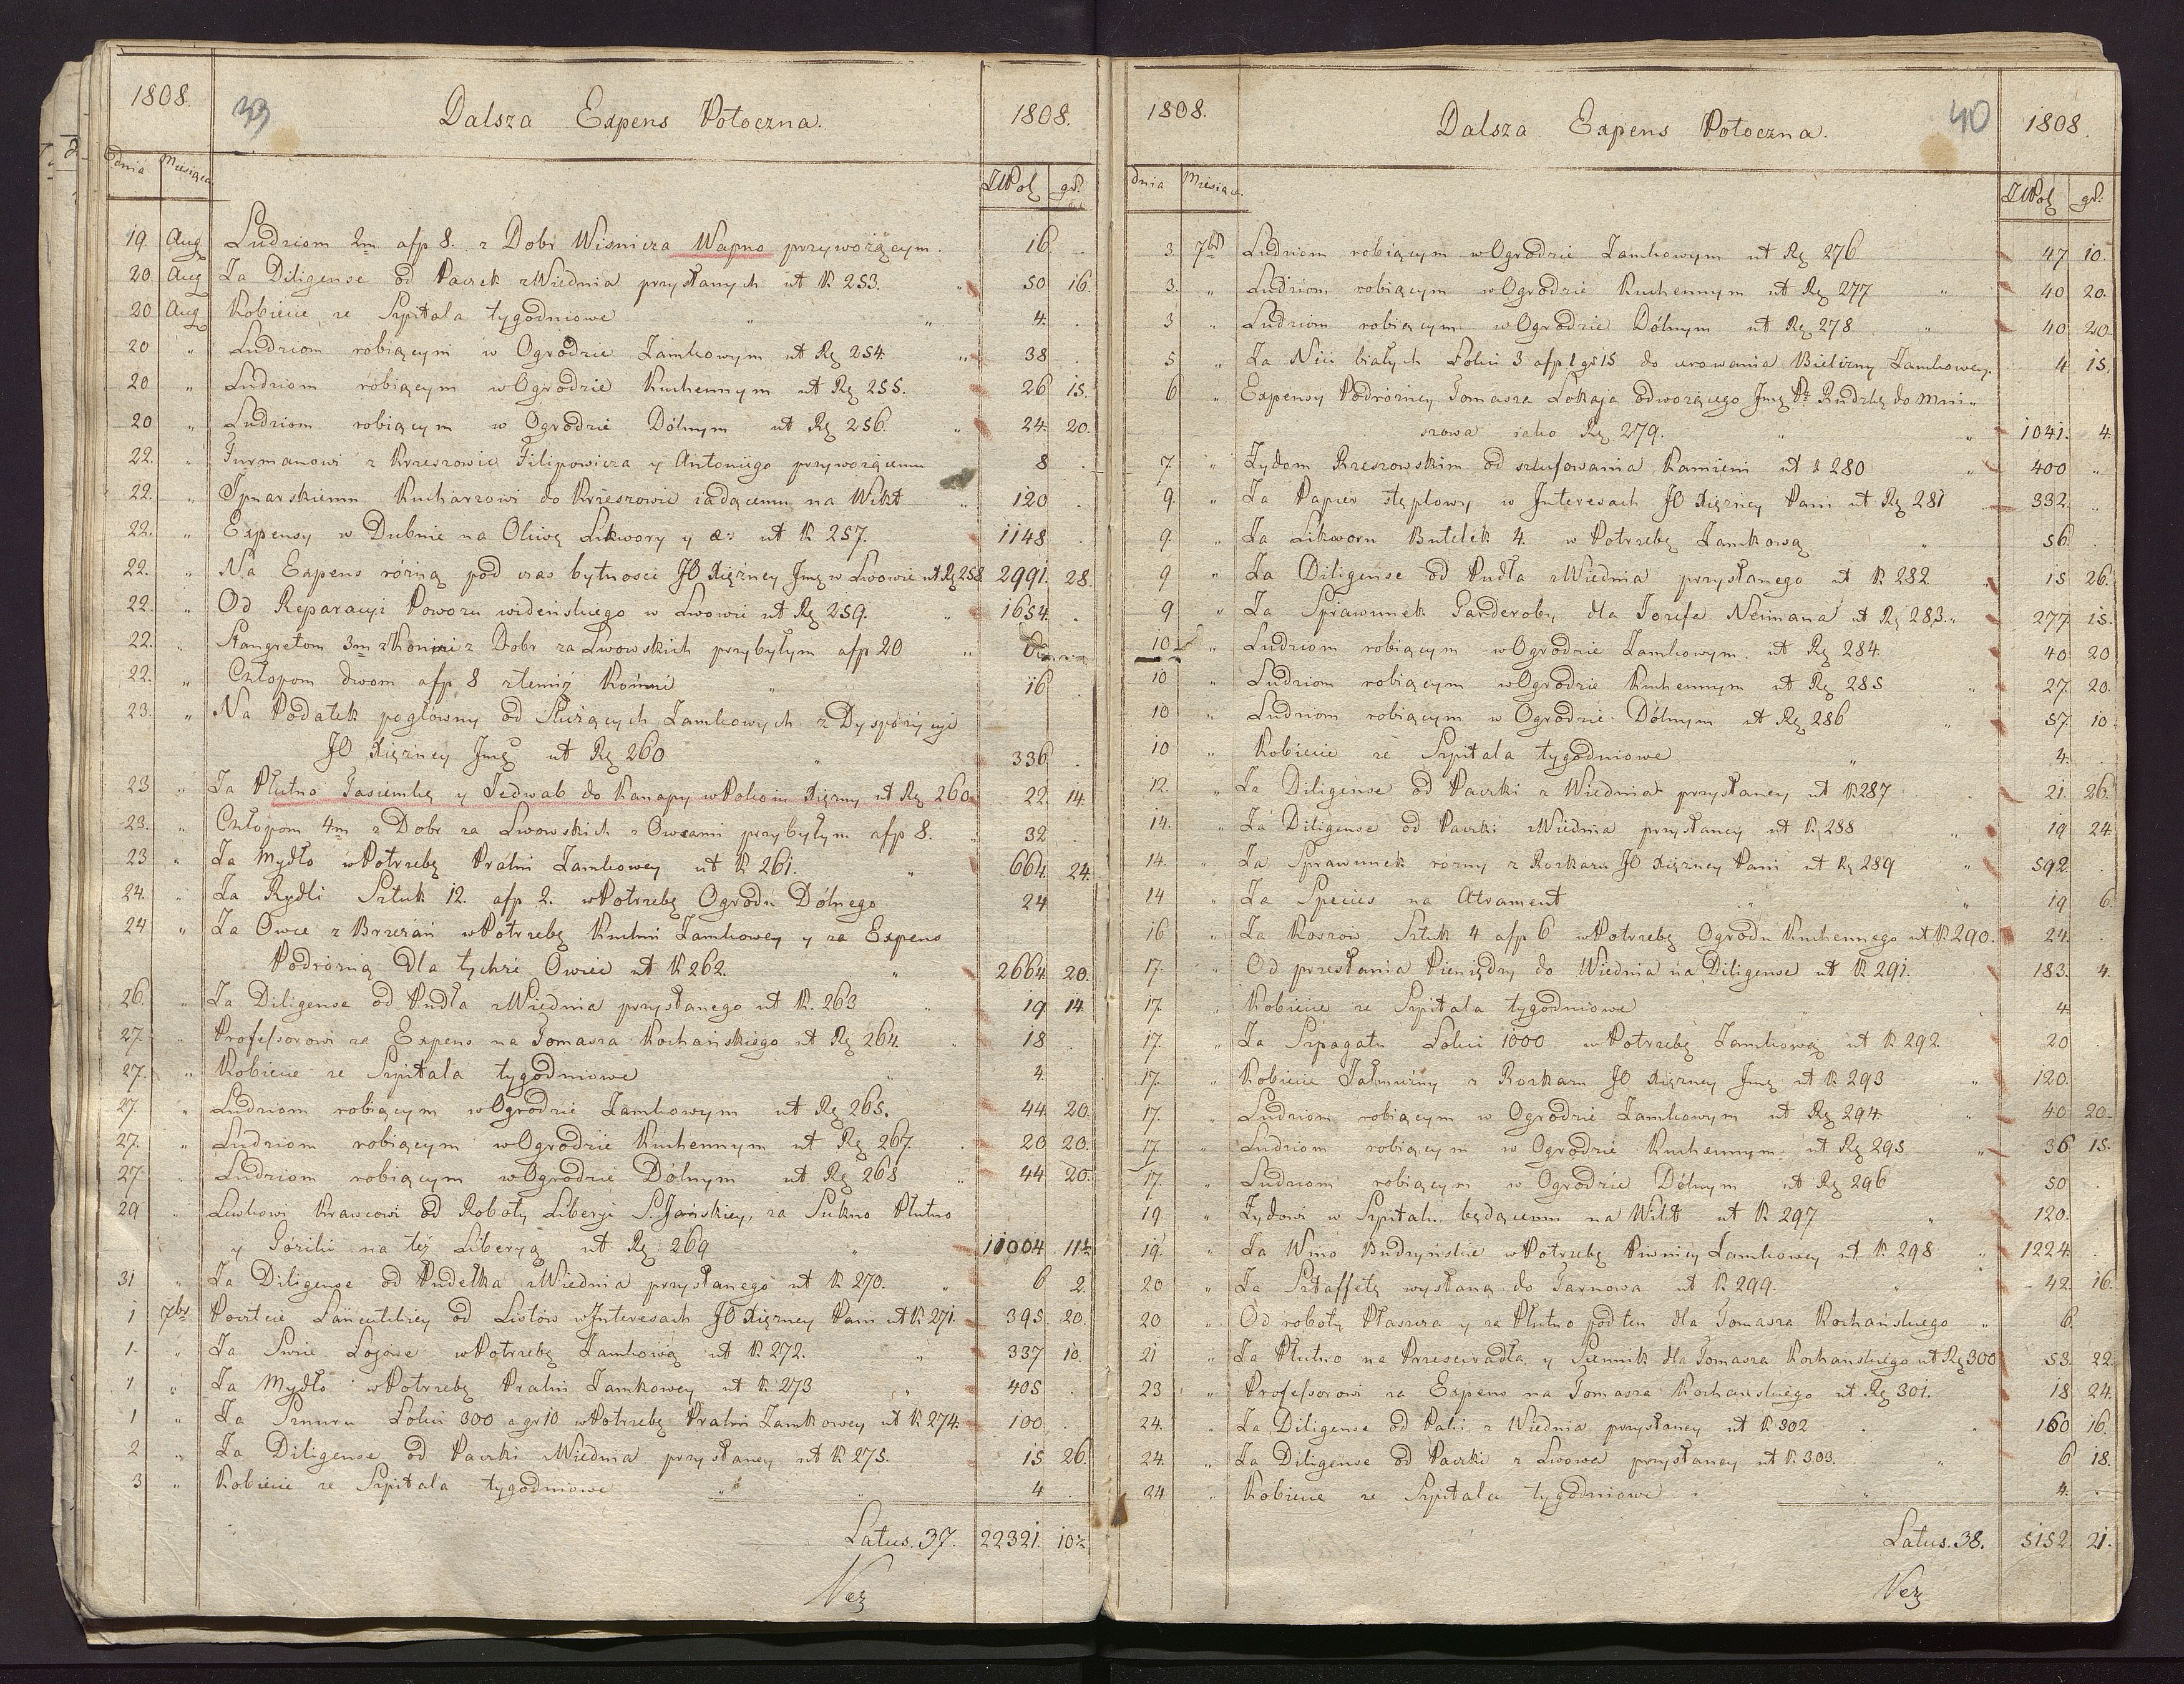 1808. 39 Dalsza Expens Potoczna. 1808.
dnia Miesiąca ZłPol gr:
19. Aug Ludziom 2m afp 8. z Dobr Wisnicza Wapno przywożącym. 16
20 Aug Za Diligense od Paczek z Wiednia przysłanych ut R 253. 50 16.
20 Aug Kobiecie ze Szpitala tygodniowe " " 4.
20 " Ludziom robiącym w Ogrodzie Zamkowym ut Rg 254 " 38
20 " Ludziom robiącym w Ogrodzie Kuchennym ut Rg 255. " 26 15.
20 " Ludziom robiącym w Ogrodzie Dólnym ut Rg 256 " 24. 20.
22. " Furmanowi z Krzeszowic Filipowicza y Antoniego przywożącemu 8
22. " Kucharzowi do Krzeszowic iadącemu na Wikt " 120
22. " Expensy w Dubnie na Oliwę Likwory y &: ut R 257. 1148
22. " Na Expens rózną pod czas bytnosci JO Xiężney Jmę w Lwowie ut Rg 258 2991. 28.
22. " Od Reparacyi Powozu wideńskiego w Lwowie ut Rg 259. " 1654.
22. " Stangretom 3m z Końmi z Dobr za Lwowskich przybyłym afp 20 "
22. " Chłopom dwom afp 8 z temiż Końmi " 16
23. " Na Podatek pogłówny od Służących Zamkowych z Dyspozycyi
JO Xiężney Jmę ut Rg 260 " 336
23 " Za Płutno Tasiemkę y Jedwab do Kanapy w Pokoiu Xiężny ut Rg 260. 22. 14.
23. " Chłopom 4m z Dobr za Lwowskich z Owcami przybyłym afp 8. " 32
23 " Za Mydło w Potrzebę Pralni Zamkowey ut R 261. " 664. 24.
24. " Za Rydli Sztuk 12. afp 2. w Potrzebę Ogrodu Dólnego 24
24 " Za Owce z Brzeżan w Potrzebę Kuchni Zamkowey y za Expens
Podrózną dla tychże Owiec ut R 262. " 2664. 20.
26 " Za Diligense od Pudła z Wiednia przysłanego ut R. 263 " 19 14.
27. " Professorowi za Expens na Tomasza Kochańskiego ut Rg 264. " 18
27. " Kobiecie ze Szpitala tygodniowe " 4.
27. " Ludziom robiącym w Ogrodzie Zamkowym ut Rg 265. 44. 20.
27. " Ludziom robiącym w Ogrodzie Kuchennym ut Rg 267 20 20.
27. " Ludziom robiącym w Ogrodzie Dólnym ut Rg 268 " 44 20.
29 " Krawcowi od Roboty Liberyi za Sukno Płutno
y na tęż Liberyą ut Rg 269 " 11004 11½
31 " Za Diligense od Pudełka z Wiednia przysłanego ut R 270. " 6 2.
1 7br Poczcie Łańcutskiey od Listów w Interesach JO Xiężney Pani ut R 271. 395. 20.
1. " Za Swice Łojowe w Potrzebę Zamkową ut R 272. " 337 10.
1 " Za Mydło w Potrzebę Pralni Zamkowey ut R 273 " 405
1 " Za Sznuru Łokci 300 a gr 10 w Potrzebę Pralni Zamkowey ut R 274. 100.
2 " Za Diligense od Paczki z Wiednia przysłaney ut R 275. 15 26.
3 " Kobiecie ze Szpitala tygodniowe " " 4
Latus. 37. 22321. 10½
Ver
1808. Dalsza Expens Potoczna. 40 1808.
dnia Miesiąca. ZłPol gr:
3. 7br Ludziom robiącym w Ogrodzie Zamkowym ut Rg 276 47 10.
3. " Ludziom robiącym w Ogrodzie Kuchennym ut Rg 277 " 40 20.
3 " Ludziom robiącym w Ogrodzie Dólnym ut Rg 278 " 40 20.
5 " Za Nici białych Łokci 3 afp 1 gr 15 do cerowania Bielizny Zamkowey. 4 15.
6 " Expensy Podrózney Tomasza Lokaja odwożącego do Mni"
szowa iako Rg 279. " " 1041. 4.
7 " Żydom Rzeszowskim od szlufowania Kamieni ut R 280 " 400 "
9. " Za Papier stęplowy w Interesach JO Xiężney Pani ut Rg 281 332. "
9 " Za Likworu Butelek 4. w Potrzebę Zamkową " 56
9 " Za Diligense od Pudła z Wiednia przysłanego ut R 282 15 26.
9 " Za Sprawunek Garderoby dla Jozefa Neimana ut Rg 283. " 277 15.
10 " Ludziom robiącym w Ogrodzie Zamkowym. ut Rg 284 40 20
10 " Ludziom robiącym w Ogrodzie Kuchennym ut Rg 285 " 27. 20.
10 " Ludziom robiącym w Ogrodzie Dólnym ut Rg 286 " 57. 10
10 " Kobiecie ze Szpitala tygodniowe " 4.
12. " Za Diligense od Paczki z Wiednia przysłaney ut R 287 21. 26.
14. " Za Diligense od Paczki z Wiednia przysłaney ut R. 288 " 19 24
14. " Za Sprawunek rózny z Rozkazu JO Xiężney Pani ut Rg 289 " 592.
14 " Za Species na Atrament " " 19 6.
16 " Za Koszow Sztuk 4 afp 6 w Potrzebę Ogrodu Kuchennego ut R 290. 24.
17. " Od przesłania Pieniędzy do Wiednia na Diligense ut R 291. 183. 4.
17. " Kobiecie ze Szpitala tygodniowe " 4.
17. " Za Szpagatu Łokci 1000 w Potrzebę Zamkową ut R 292 20
17. " Kobiecie Jałmużny z Rozkazu JO Xiężney Jmę ut R 293 " 120.
17. " Ludziom robiącym w Ogrodzie Zamkowym ut Rg 294. " 40 20.
17. " Ludziom robiącym w Ogrodzie Kuchennym. ut Rg 295 " 36 15.
17. " Ludziom robiącym w Ogrodzie Dólnym ut Rg 296 50
19 " Żydowi w Szpitalu będącemu na Wikt ut R 297 " 120.
19. " Za Wino Budzynskie w Potrzebę Piwnicy Zamkowey ut R. 298 " 1224.
20 " Za Sztaffetę wysłaną do Tarnowa ut R 299. " 42. 16.
20 " Od roboty Płaszcza y za Płutno pod ten dla Tomasza Kochańskiego " 6
21 " Za Płutno na Przescieradła y Siennik dla Tomasza Kochańskiego ut Rg 300 53. 22.
23 " Professorowi za Expens na Tomasza Kochanskiego ut Rg 301. 18 24.
24. " Za Diligense od Paki z Wiednia przysłaney ut R 302 160 16.
24. " Za Diligense od Paczki z Lwowa przysłaney ut R. 303. " 6 18.
24 " Kobiecie ze Szpitala tygodniowe " 4.
Latus. 38. 5152. 21.
Ver